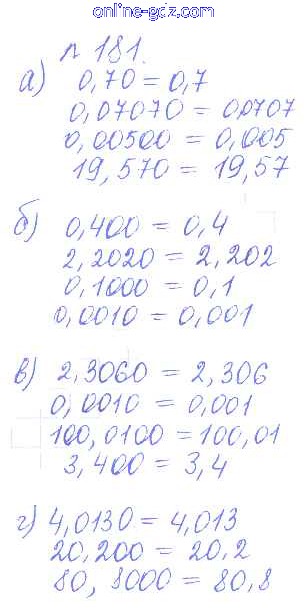 online-gdz.com
n 181.
а) 0,70 = 0,7
0,07070 = 0,0707
0,00500 = 0,005
19,570 = 19,57
б) 0,400 = 0,4
2,2020 = 2,202
0,1000 = 0,1
0,0010 = 0,001
в) 2,3060 = 2,306
0,0010 = 0,001
100,0100 = 100,01
3,400 = 3,4
г) 4,0130 = 4,013
20,200 = 20,2
80,8000 = 80,8